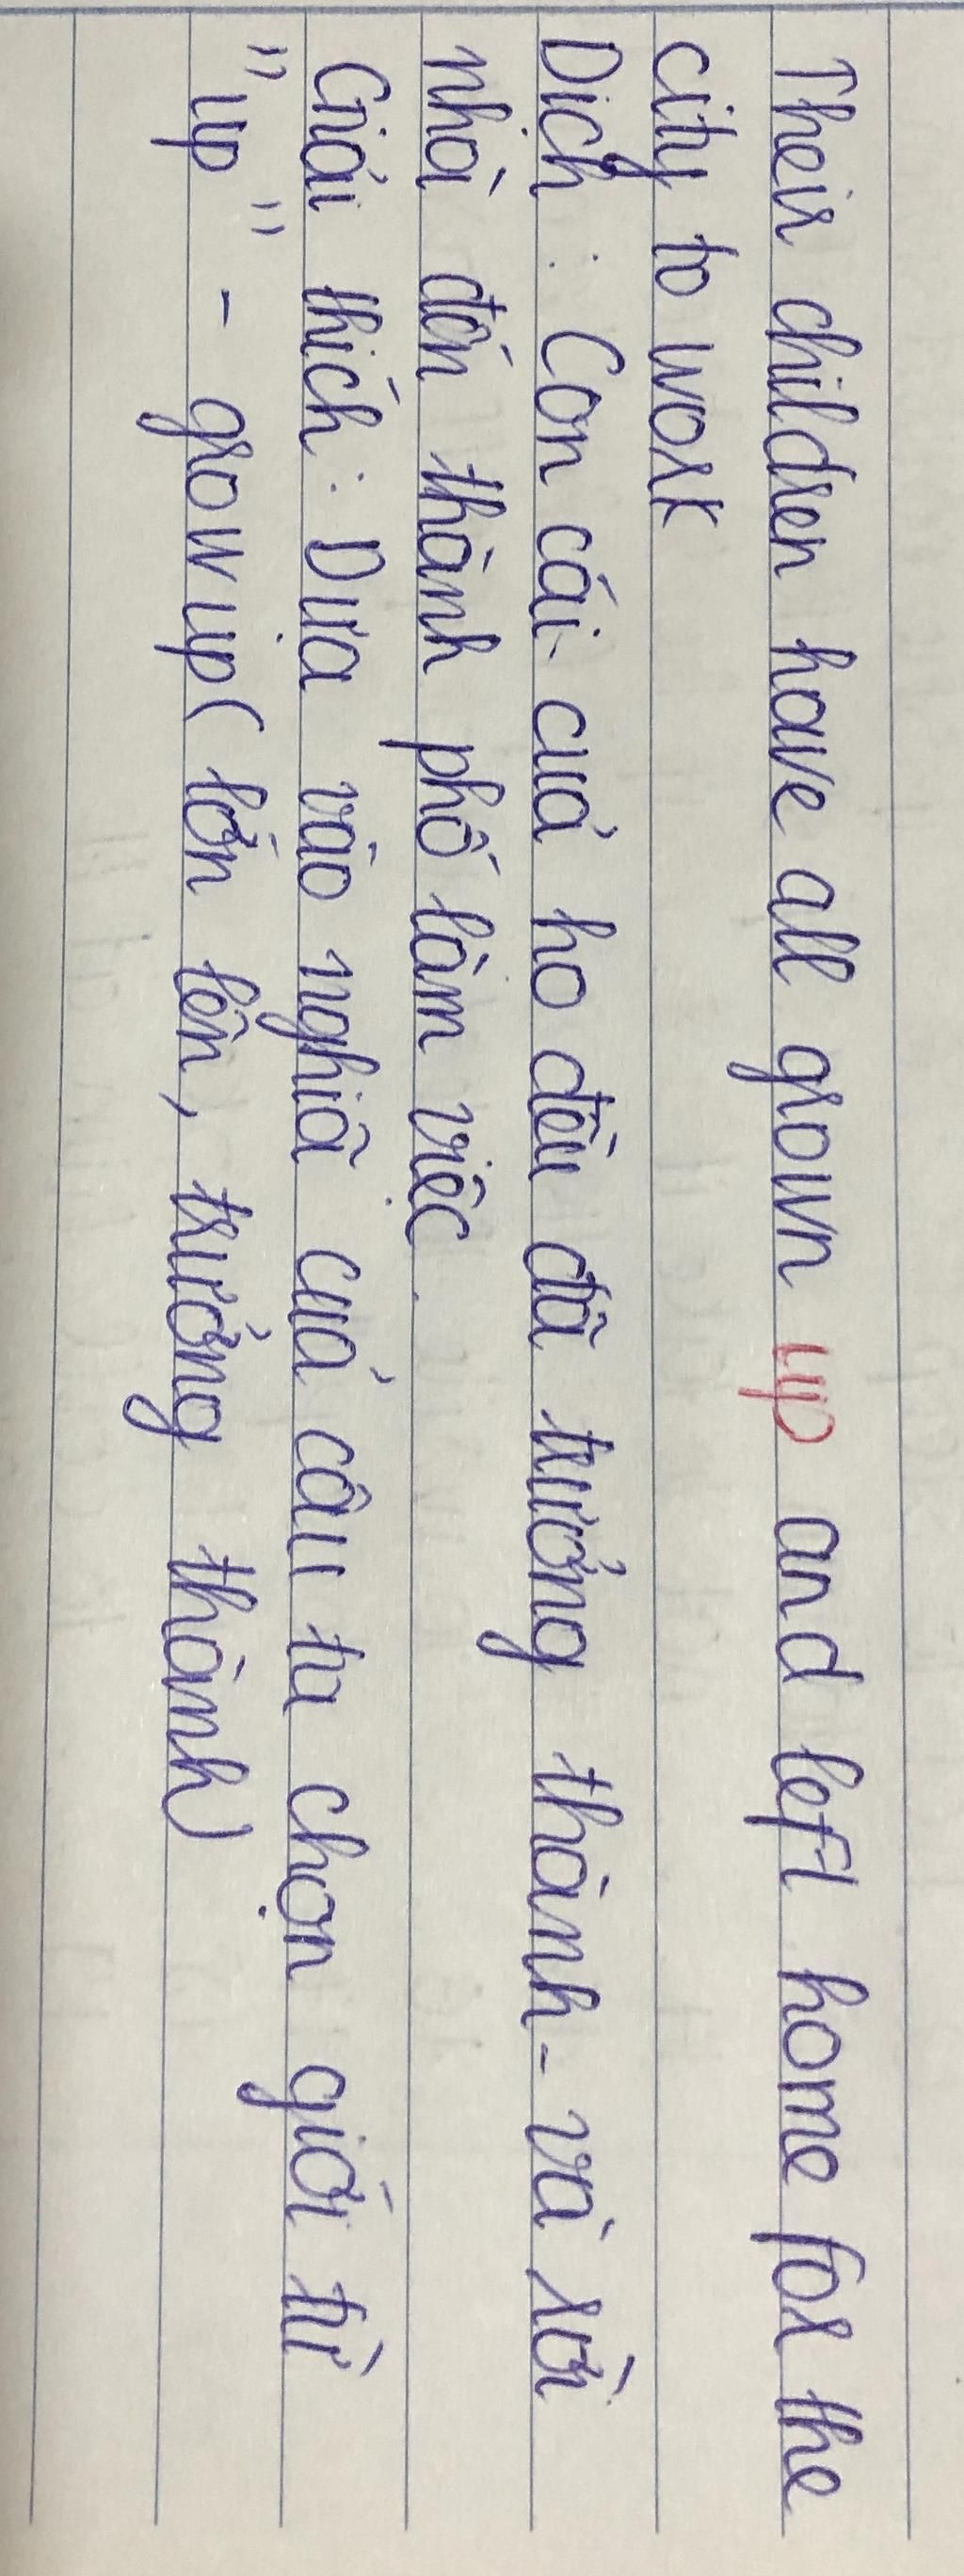 Their children have all grown up and left home for the
city to work
Dịch : Con cái của họ đều đã trưởng thành - và rời
nhà đến thành phố làm việc.
Giải thích : Dựa vào nghĩa của câu ta chọn giới từ
"up" - grow up ( lớn lên, trưởng thành)